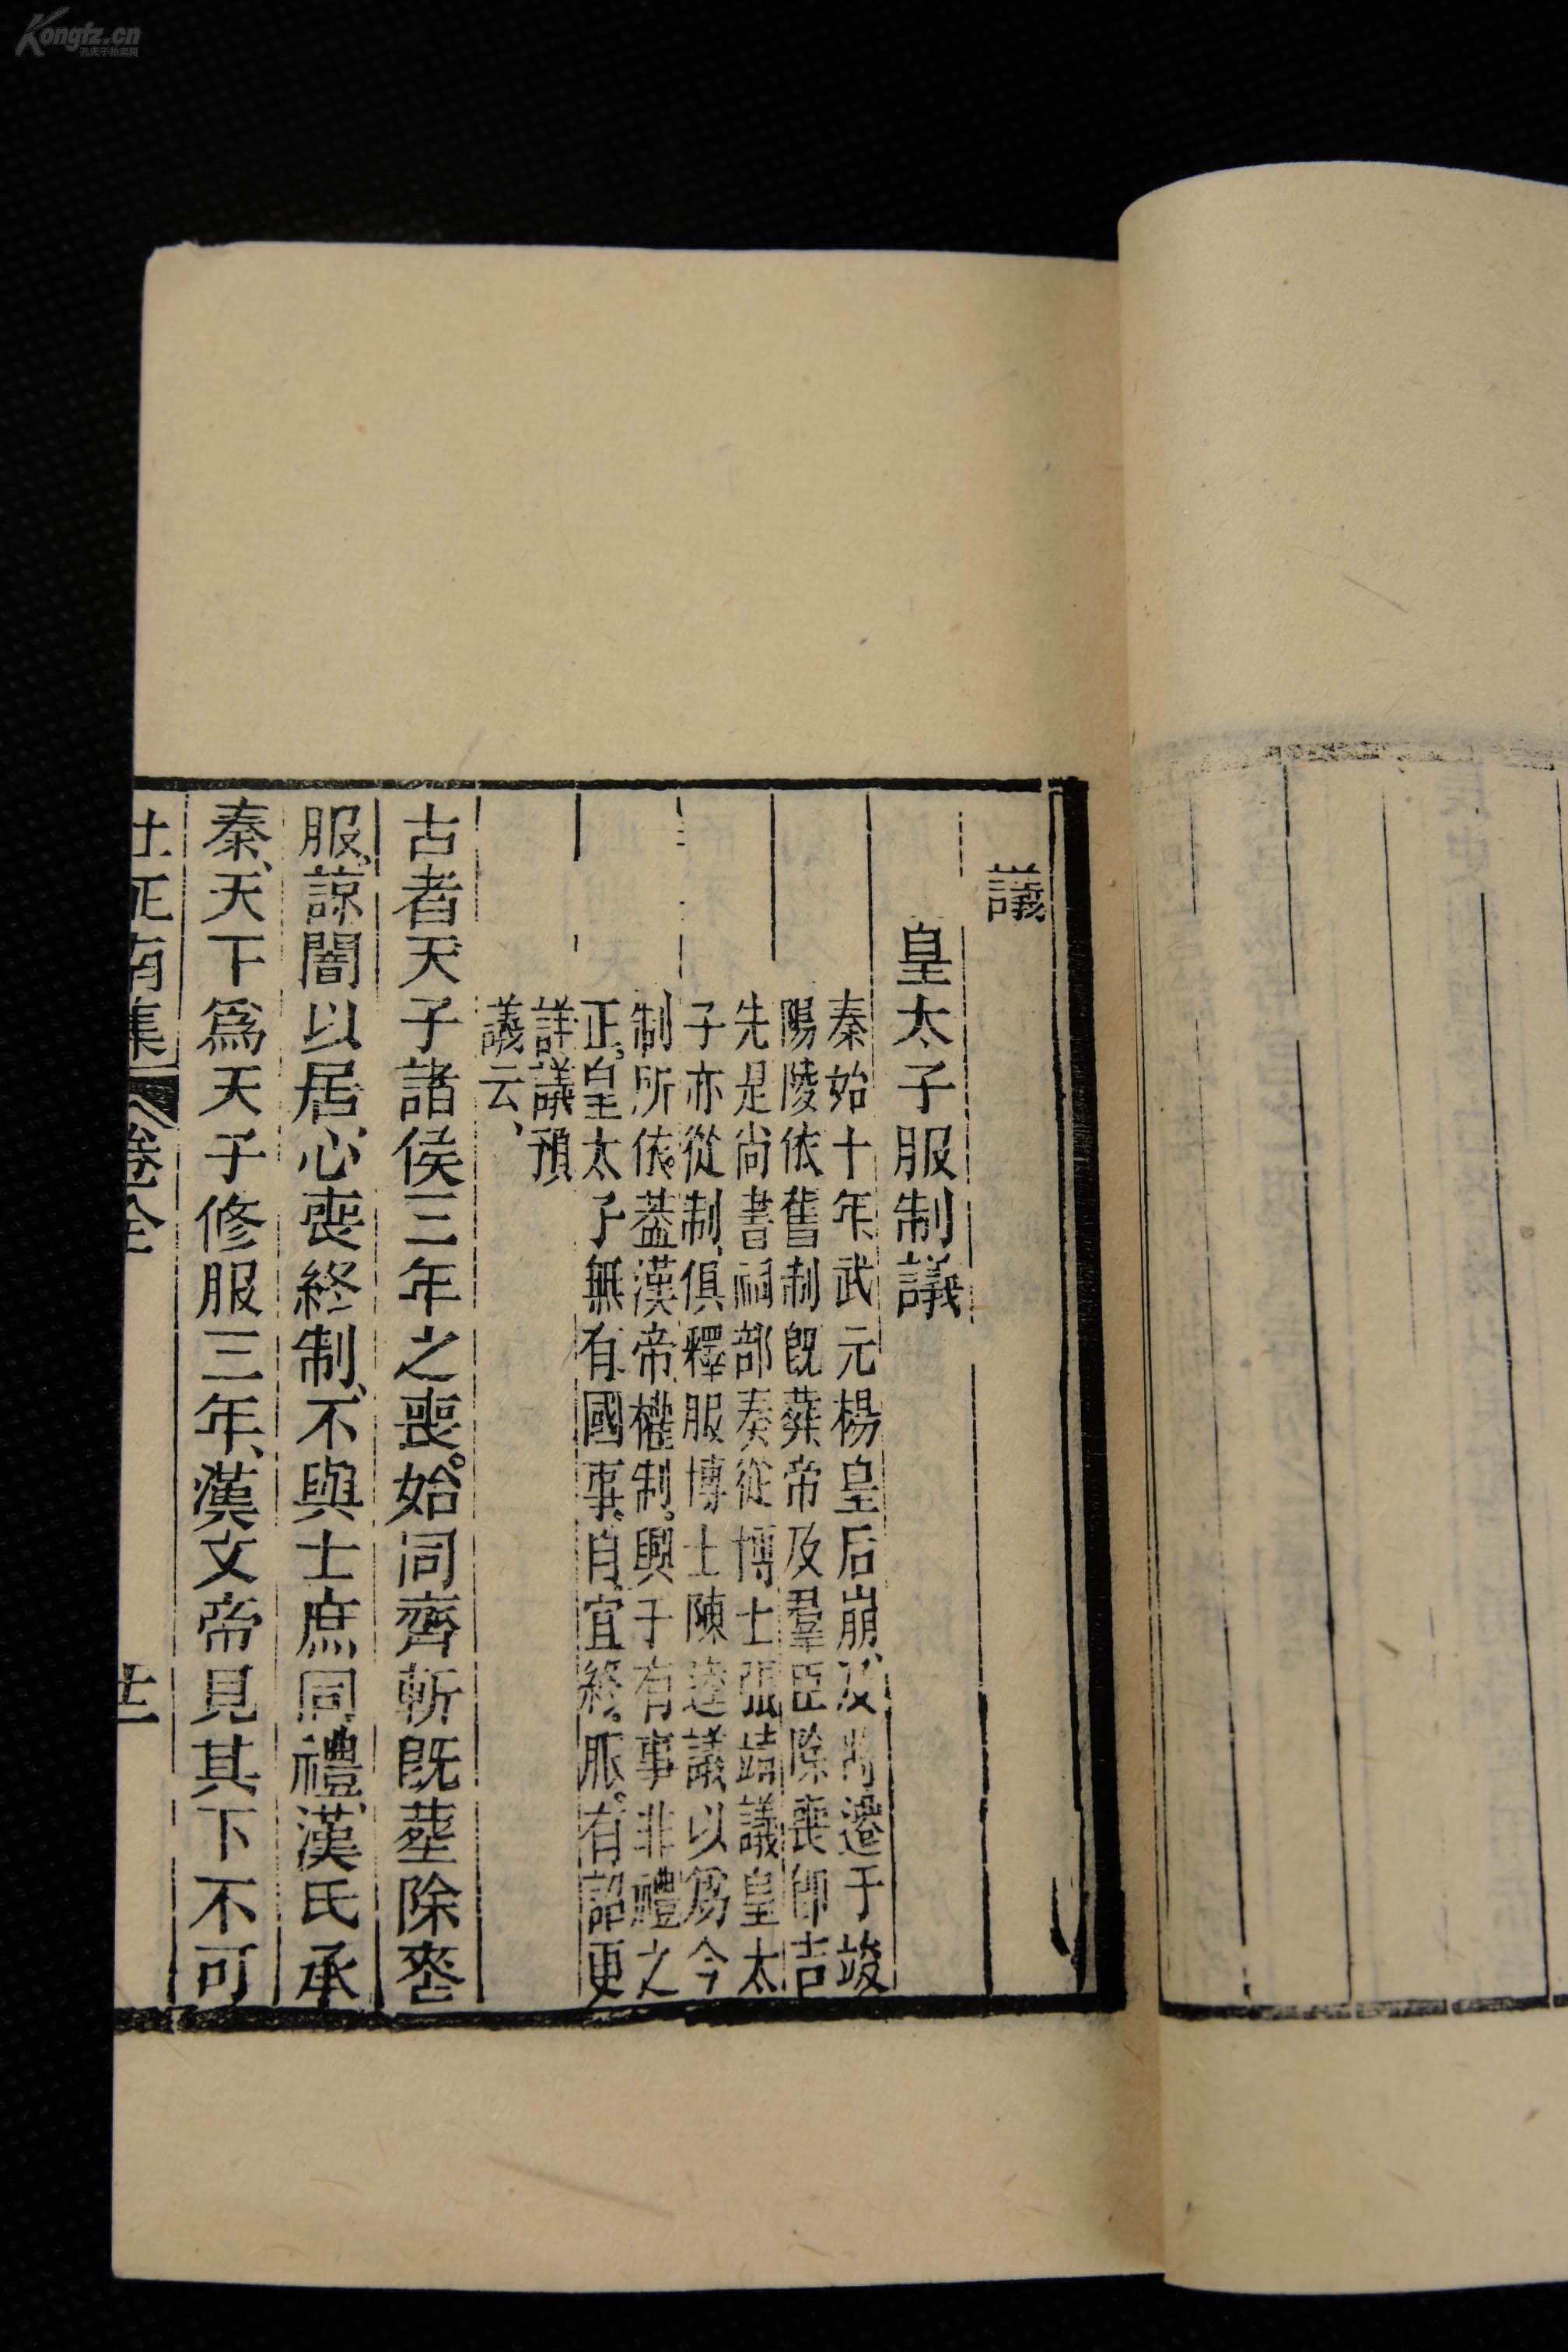 議
皇太子服制議
秦始十年武元楊皇后崩及將遷于竣
陽陵依舊制既葬帝及羣臣除喪卽吉
先是尚書祠部奏從博士張靖議皇太
子亦從制、俱釋服博士陳逵議以爲今
制所依。葢漢帝權制。興于有事非禮之
正。皇太子無有國事。自宜終服。有詔更
詳議預
議云、
古者天子諸侯三年之喪。始同齊斬既葬除喪
服、諒闇以居、心喪終制、不與士庶同禮、漢氏承
秦、天下爲天子修服三年、漢文帝見其下不可
杜征南集 卷全
廿一
Kongfz.cn
孔夫子拍卖网